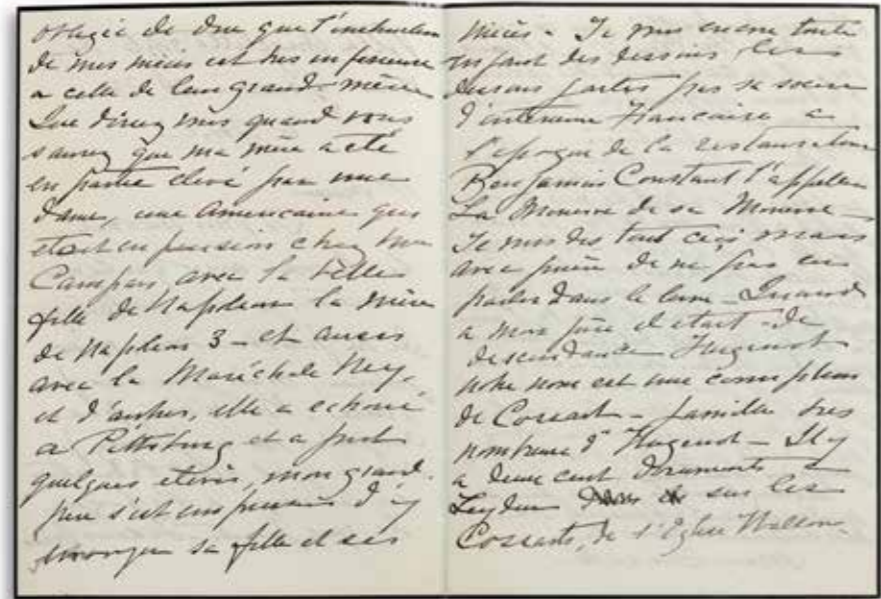 obligée de dire que l'instruction
de mes nièces est très inferieure
a celle de leur grand-mère
Que direz vous quand vous
saurez que ma mère a été
en partie elevé par une
Dame, une Americaine qui
etait en pension chez Mme
Campan, avec la belle
fille de Napoleon la mère
de Napoleon 3 - et aussi
avec la Maréchale Ney,
et d'autres, elle a echoué
a Pittsburg et a
quelques elevès, mon grand
père s'est empressé d'y
envoyer sa fille et ses
nièces - Je encore toute
enfant des dessins, les
par sa
Francaise a
l'epoque de la restauration
Benjamin Constant l'appelait
La de sa
Je vous dis tout ceci mais
avec prière de ne pas en
parler dans le livre - Quand
a mon père il etait - de
descendance Hugenot
notre nom est une corruption
de Cossart - famille très
nombreuse d'Hugenot - Il y
a deux cent documents a
Leyden sur les
Cossarts, de l'Eglise Wallon-